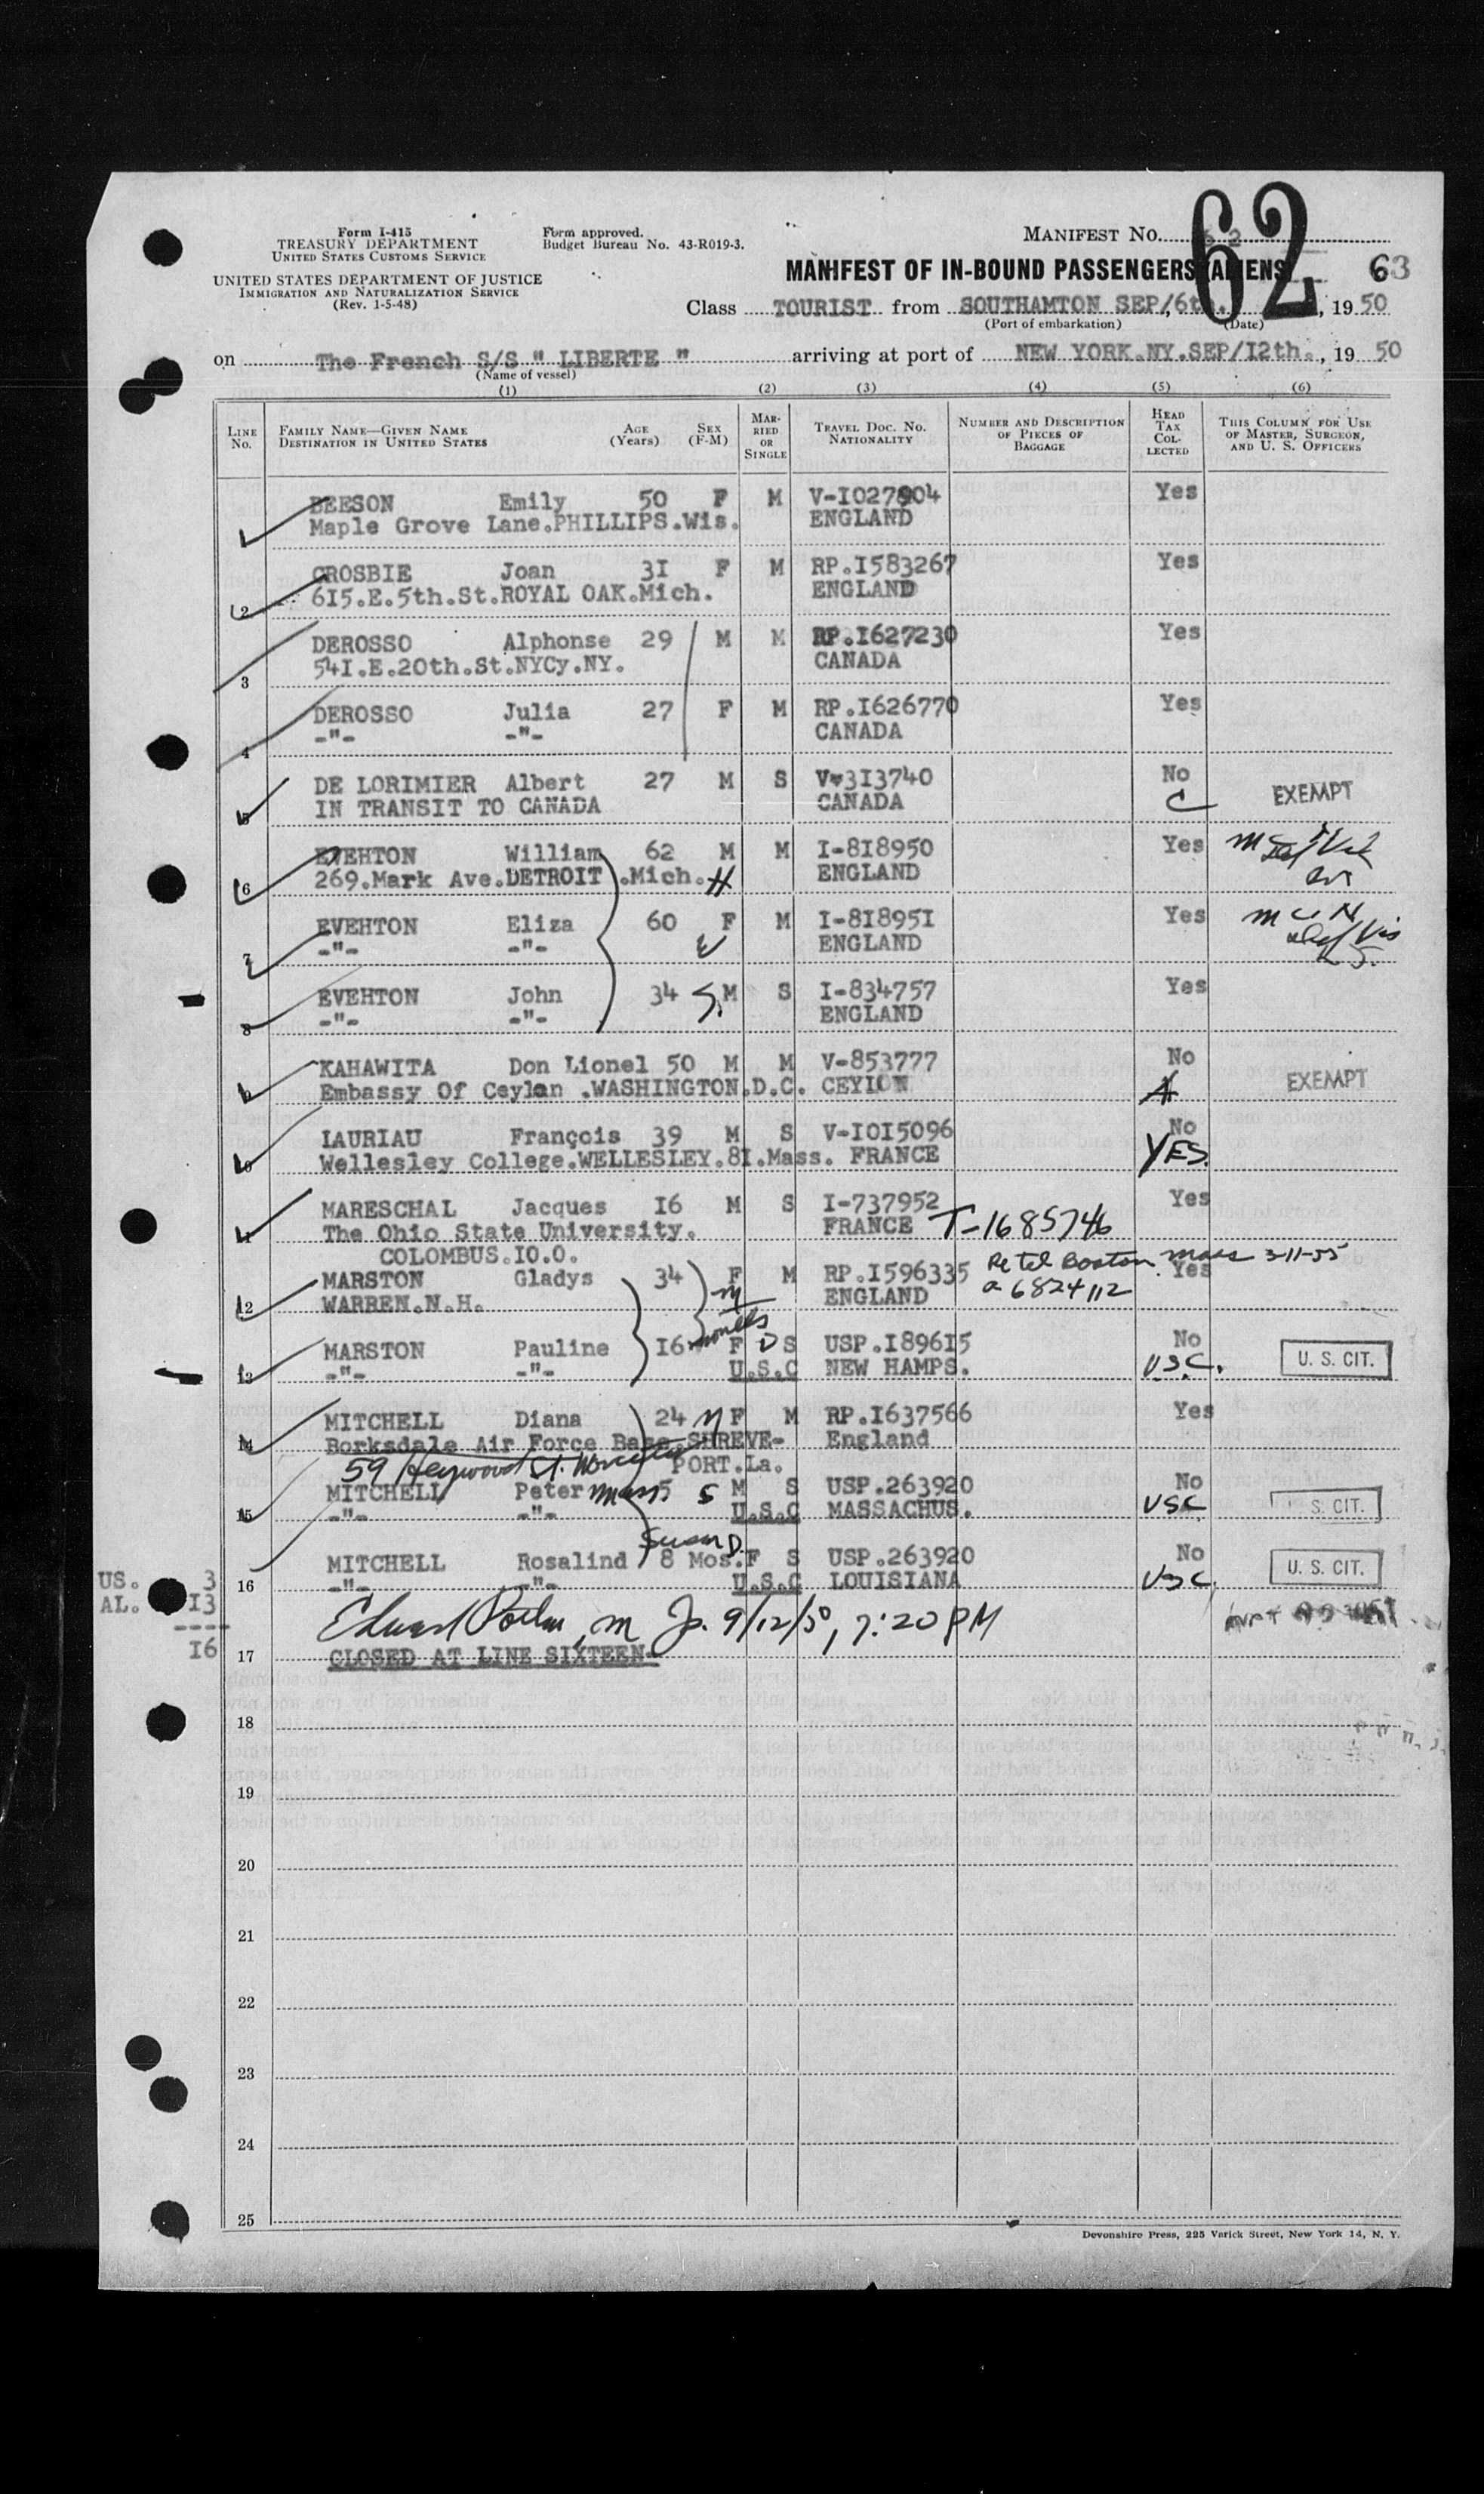 Form I-415
TREASURY DEPARTMENT
UNITED STATES CUSTOMS SERVICE
UNITED STATES DEPARTMENT OF JUSTICE
IMMIGRATION AND NATURALIZATION SERVICE
(Rev. 1-5-48)
Form approved.
Budget Bureau No. 43-R019-3.
MANIFEST NO. 62
62
MANIFEST OF IN-BOUND PASSENGERS (ALIENS) 63
Class TOURIST from SOUTHAMTON SEP/6th. , 19 50
(Port of embarkation) (Date)
on The French S/S " LIBERTE " arriving at port of NEW YORK.NY.SEP/I2th. , 19 50
(Name of vessel)
(1) (2) (3) (4) (5) (6)
LINE No. FAMILY NAME—GIVEN NAME DESTINATION IN UNITED STATES AGE (Years) SEX (F-M) MARRIED OR SINGLE TRAVEL DOC. NO. NATIONALITY NUMBER AND DESCRIPTION OF PIECES OF BAGGAGE HEAD TAX COLLECTED THIS COLUMN FOR USE OF MASTER, SURGEON, AND U. S. OFFICERS
BEESON Emily 50 F M V-I027904 Yes
1 Maple Grove Lane.PHILLIPS.Wis. ENGLAND
CROSBIE Joan 3I F M RP.I583267 Yes
2 6I5.E.5th.St.ROYAL OAK.Mich. ENGLAND
DEROSSO Alphonse 29 M M RP.I627230 Yes
3 54I.E.20th.St.NYCy.NY. CANADA
DEROSSO Julia 27 F M RP.I626770 Yes
4 -"- -"- CANADA
DE LORIMIER Albert 27 M S V-3I3740 No
5 IN TRANSIT TO CANADA CANADA C EXEMPT
EVEHTON William 62 M M I-8I8950 Yes
6 269.Mark Ave.DETROIT .Mich. H ENGLAND
EVEHTON Eliza 60 F M I-8I895I Yes
7 -"- -"- W ENGLAND
EVEHTON John 34 S. M S I-834757 Yes
8 -"- -"- ENGLAND
KAHAWITA Don Lionel 50 M M V-853777 No
9 Embassy Of Ceylan .WASHINGTON.D.C. CEYLON A EXEMPT
LAURIAU François 39 M S V-I0I5096 No
10 Wellesley College.WELLESLEY.8I.Mass. FRANCE YES.
MARESCHAL Jacques I6 M S I-737952 Yes
11 The Ohio State University. FRANCE T-1685746
COLOMBUS.IO.O.
MARSTON Gladys 34 F M RP.I596335 Re tel Boston Mass 3-11-55 Yes
12 WARREN.N.H. M ENGLAND a 6824112
MARSTON Pauline I6 months F D S USP.I896I5 No
13 -"- -"- U.S.C NEW HAMPS. U.S.C. U. S. CIT.
MITCHELL Diana 24 M F M RP.I637566 Yes
14 Borksdale Air Force Base.SHREVE- England
59 Heywood St. Worcester PORT.La.
MITCHELL Peter Mass 5 S M S USP.263920 No
15 -"- -"- U.S.C MASSACHUS. USC S. CIT.
Susan D.
MITCHELL Rosalind 8 Mos. F S USP.263920 No
16 -"- -"- U.S.C LOUISIANA USC. U. S. CIT.
US. 3
AL. I3
----
I6
Edward m Jr. 9/12/50, 7:20 PM
17 CLOSED AT LINE SIXTEEN
18
19
20
21
22
23
24
25
Devonshire Press, 225 Varick Street, New York 14, N. Y.